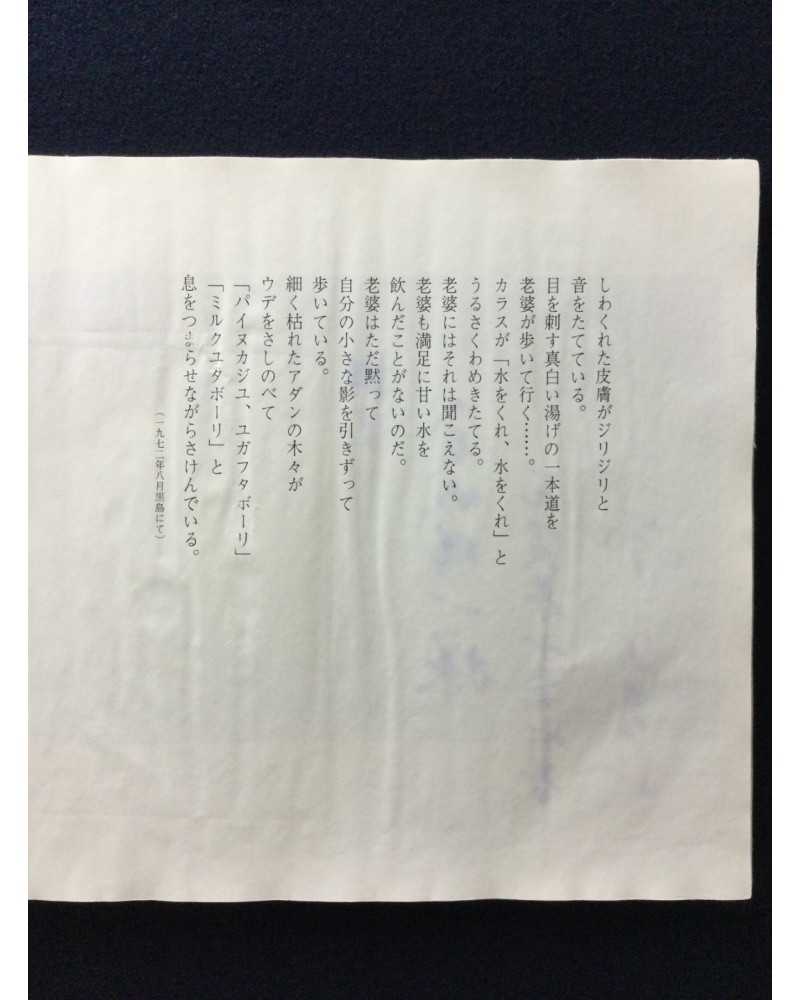 しわくれた皮膚がジリジリと
音をたてている。
目を刺す真白い湯げの一本道を
老婆が歩いて行く……。
カラスが「水をくれ、水をくれ」と
うるさくわめきたてる。
老婆にはそれは聞こえない。
老婆も満足に甘い水を
飲んだことがないのだ。
老婆はただ黙って
自分の小さな影を引きずって
歩いている。
細く枯れたアダンの木々が
ウデをさしのべて
「パイヌカジユ、ユガフタボーリ」
「ミルクユタボーリ」と
息をつまらせながらさけんでいる。
(一九七二年八月黒島にて)